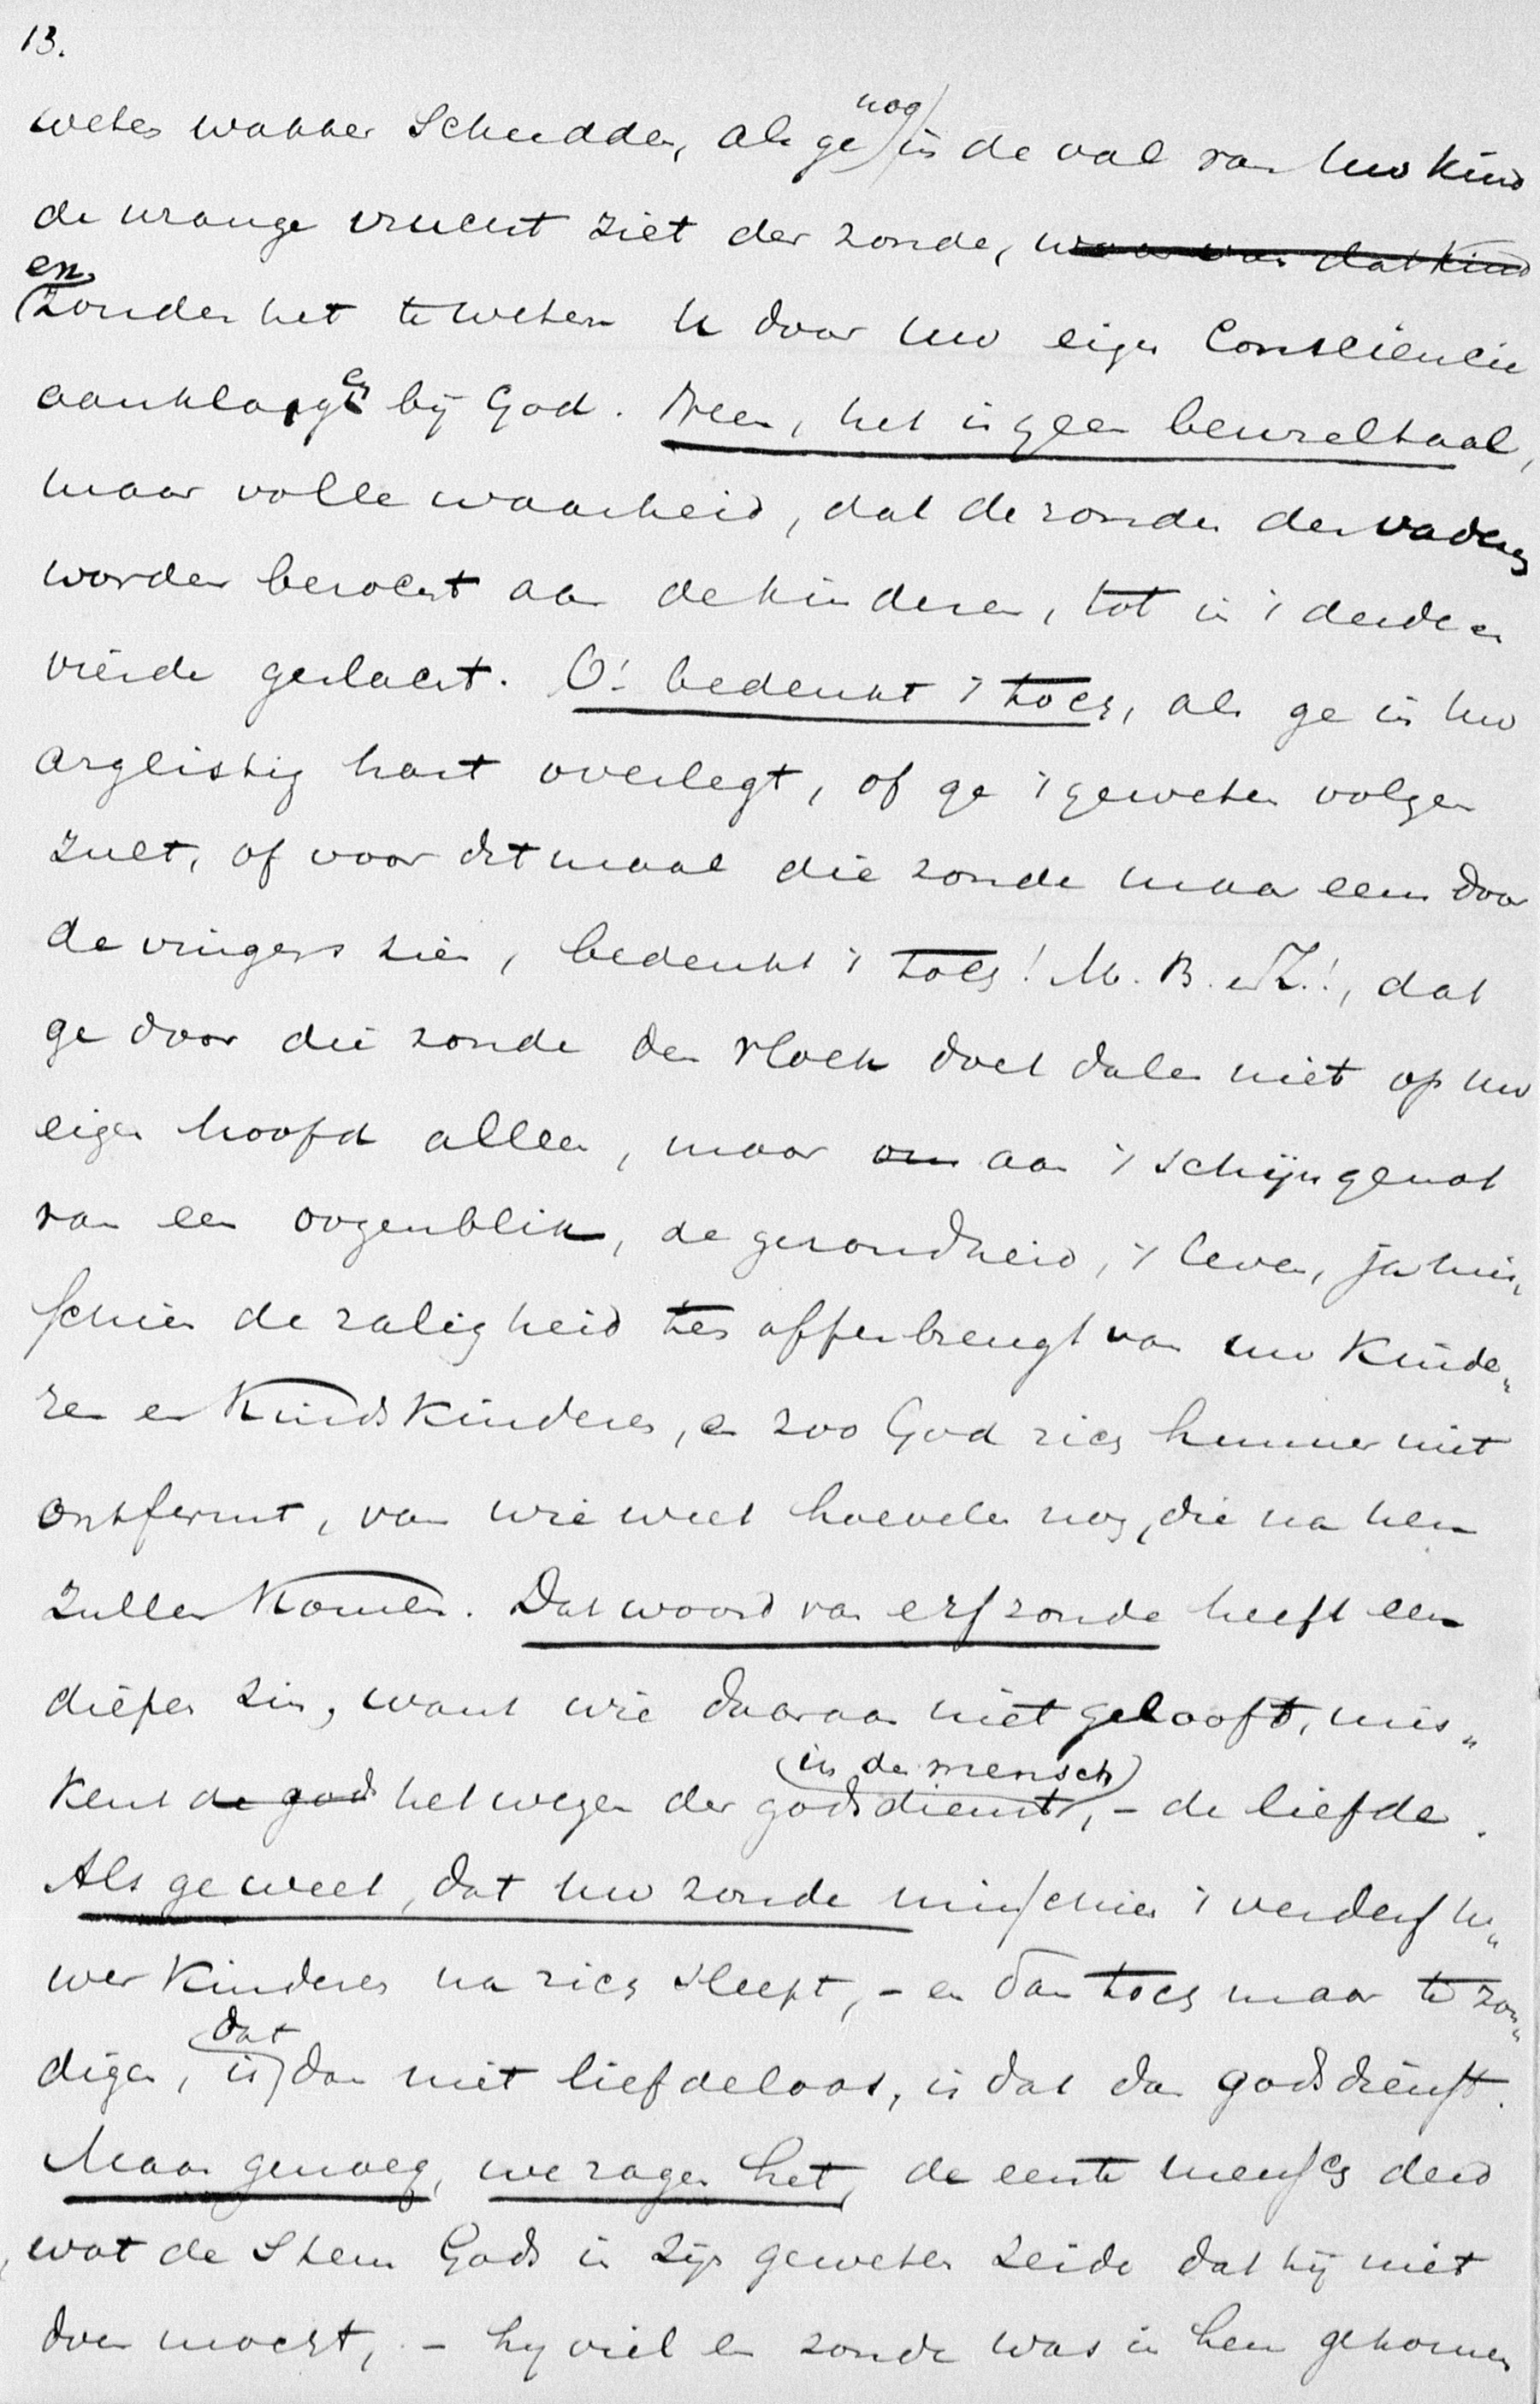 13.
weten wakker Schudden, als ge nog in de val van Uw kind
de wrange vrucht ziet der zonde, waarvan dat kind
en zonder het te weten U door Uw eigen Consciencie
aanklagen bij God. Neen, het is geen beuzeltaal,
maar volle waarheid, dat de zonden der vaderen
worden bezocht aan de kinderen, tot in 't derde en
vierde geslacht. O! bedenkt 't toch, als ge in Uw
arglistig hart overlegt, of ge 't geweten volgen
zult, of voor ditmaal die zonde maar eens door
de vingers zien, bedenkt 't toch! M. B. en Z.!, dat
ge door die zonde den vloek doet dalen niet op uw
eigen hoofd alleen, maar om aan 't schijngenot
van een oogenblik, de gezondheid, 't leven, ja mis„
schien de zaligheid ten offer brengt van uw Kinde„
ren en Kindskinderen, en zoo God zich hunner niet
ontfermt, van wie weet hoevelen nog, die na hen
zullen Komen. Dat woord van erfzonde heeft een
diepen zin, want wie daaraan niet gelooft, mis„
kent de god het wezen der godsdienst in den mensch, - de liefde.
Als ge weet, dat Uw zonde misschien 't verderf U„
wer Kinderen na zich sleept, - en dan toch maar te zon„
digen, is dat dan niet liefdeloos, is dat dan godsdienst.
Maar genoeg, we zagen het, de eerste mensch deed
wat de Stem Gods in zijn geweten zeide dat hij niet
doen mocht, - hij viel en zonde was in hem gekomen